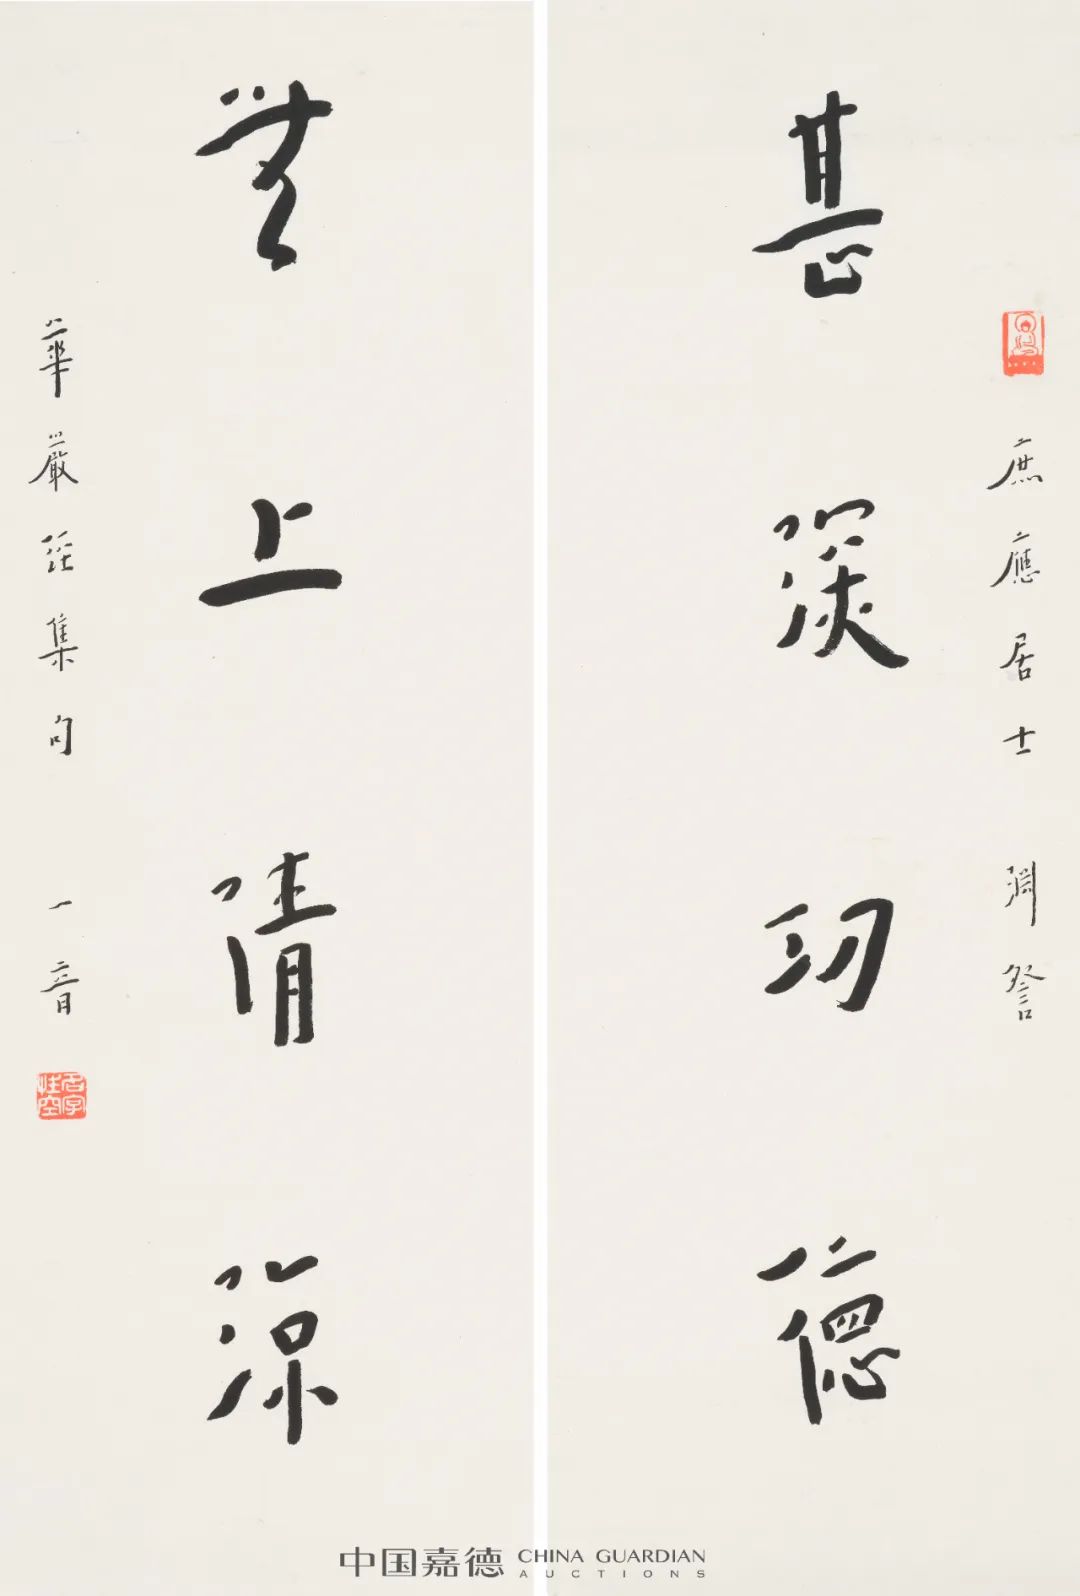 甚深功德
庶應居士 淵詧
無上清涼
華嚴經集句 一音
名字性空
中国嘉德 CHINA GUARDIAN
AUCTIONS